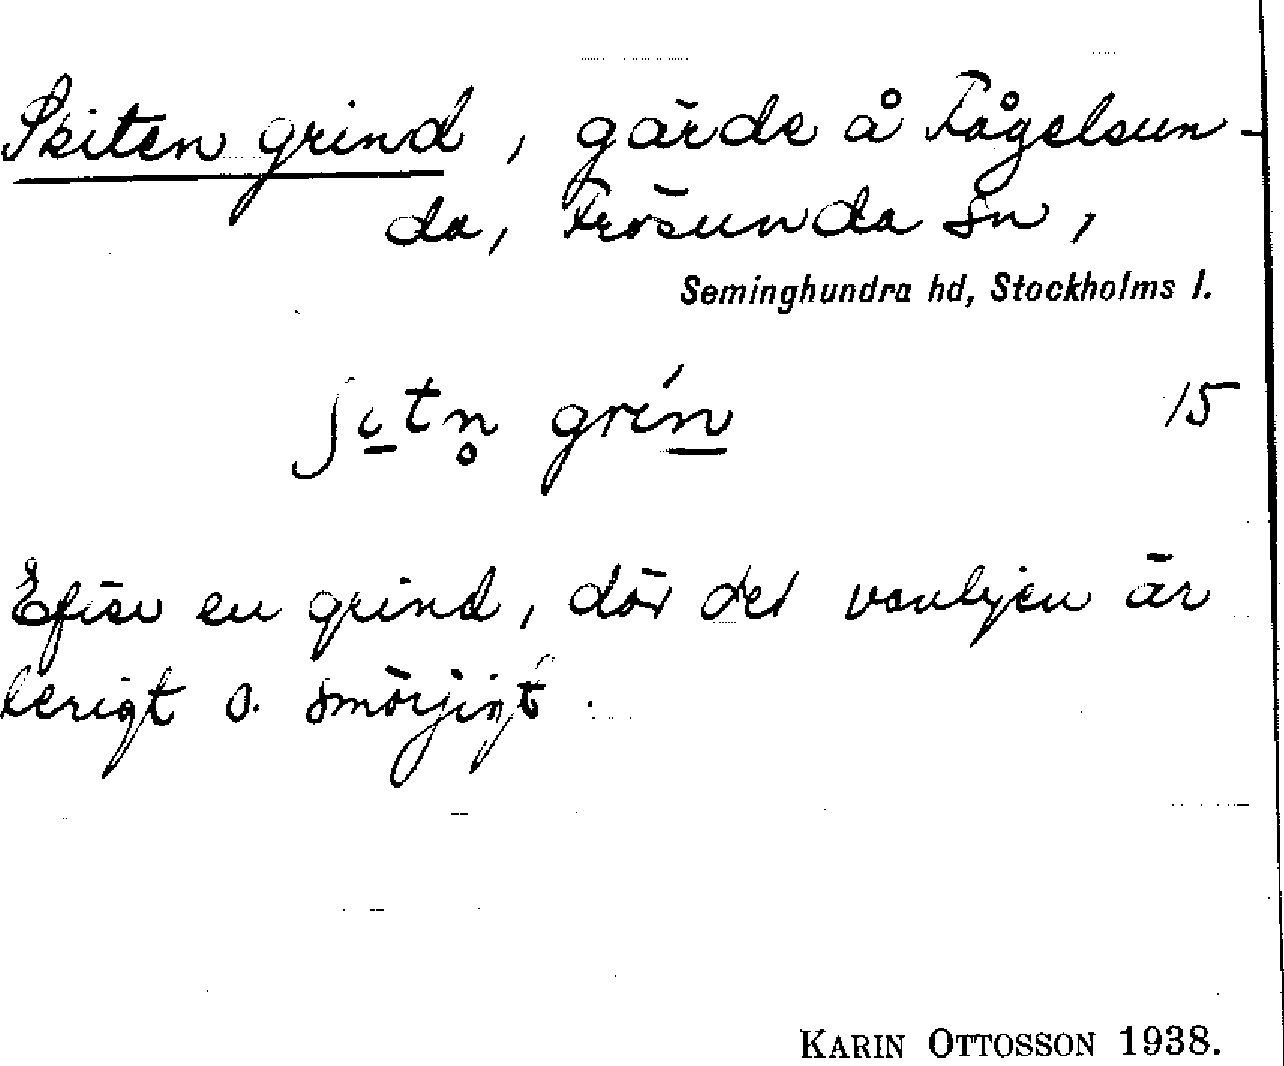 Skiten grind, gärde å Fågelsun-
da, Frösunda sn,
Seminghundra hd, Stockholms l.
ʃɩ̠tn̥ grín̠ 15
Efter en grind, där det vanligen är
lerigt o. smörjigt.
KARIN OTTOSSON 1938.